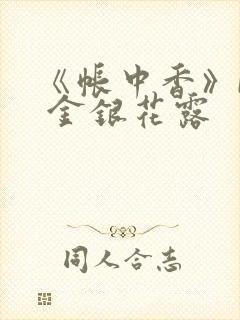 《帐中香》
金银花露
同人合志